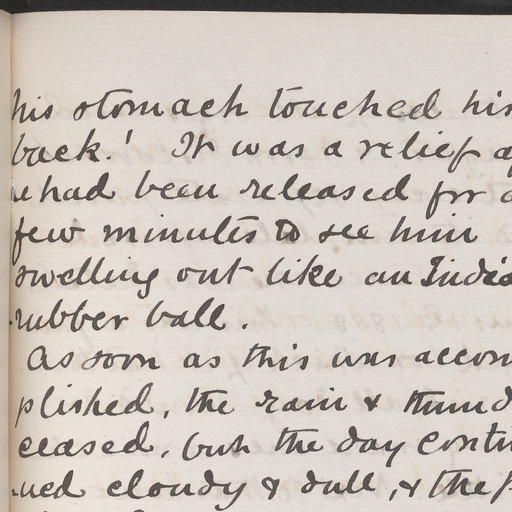 his stomach touched his
back! It was a relief a
he had been released for a
few minutes to see him
swelling out like an India
-rubber ball.
As soon as this was accom
plished, the rain & thund
ceased, but the day contin
-ued cloudy & dull, & the